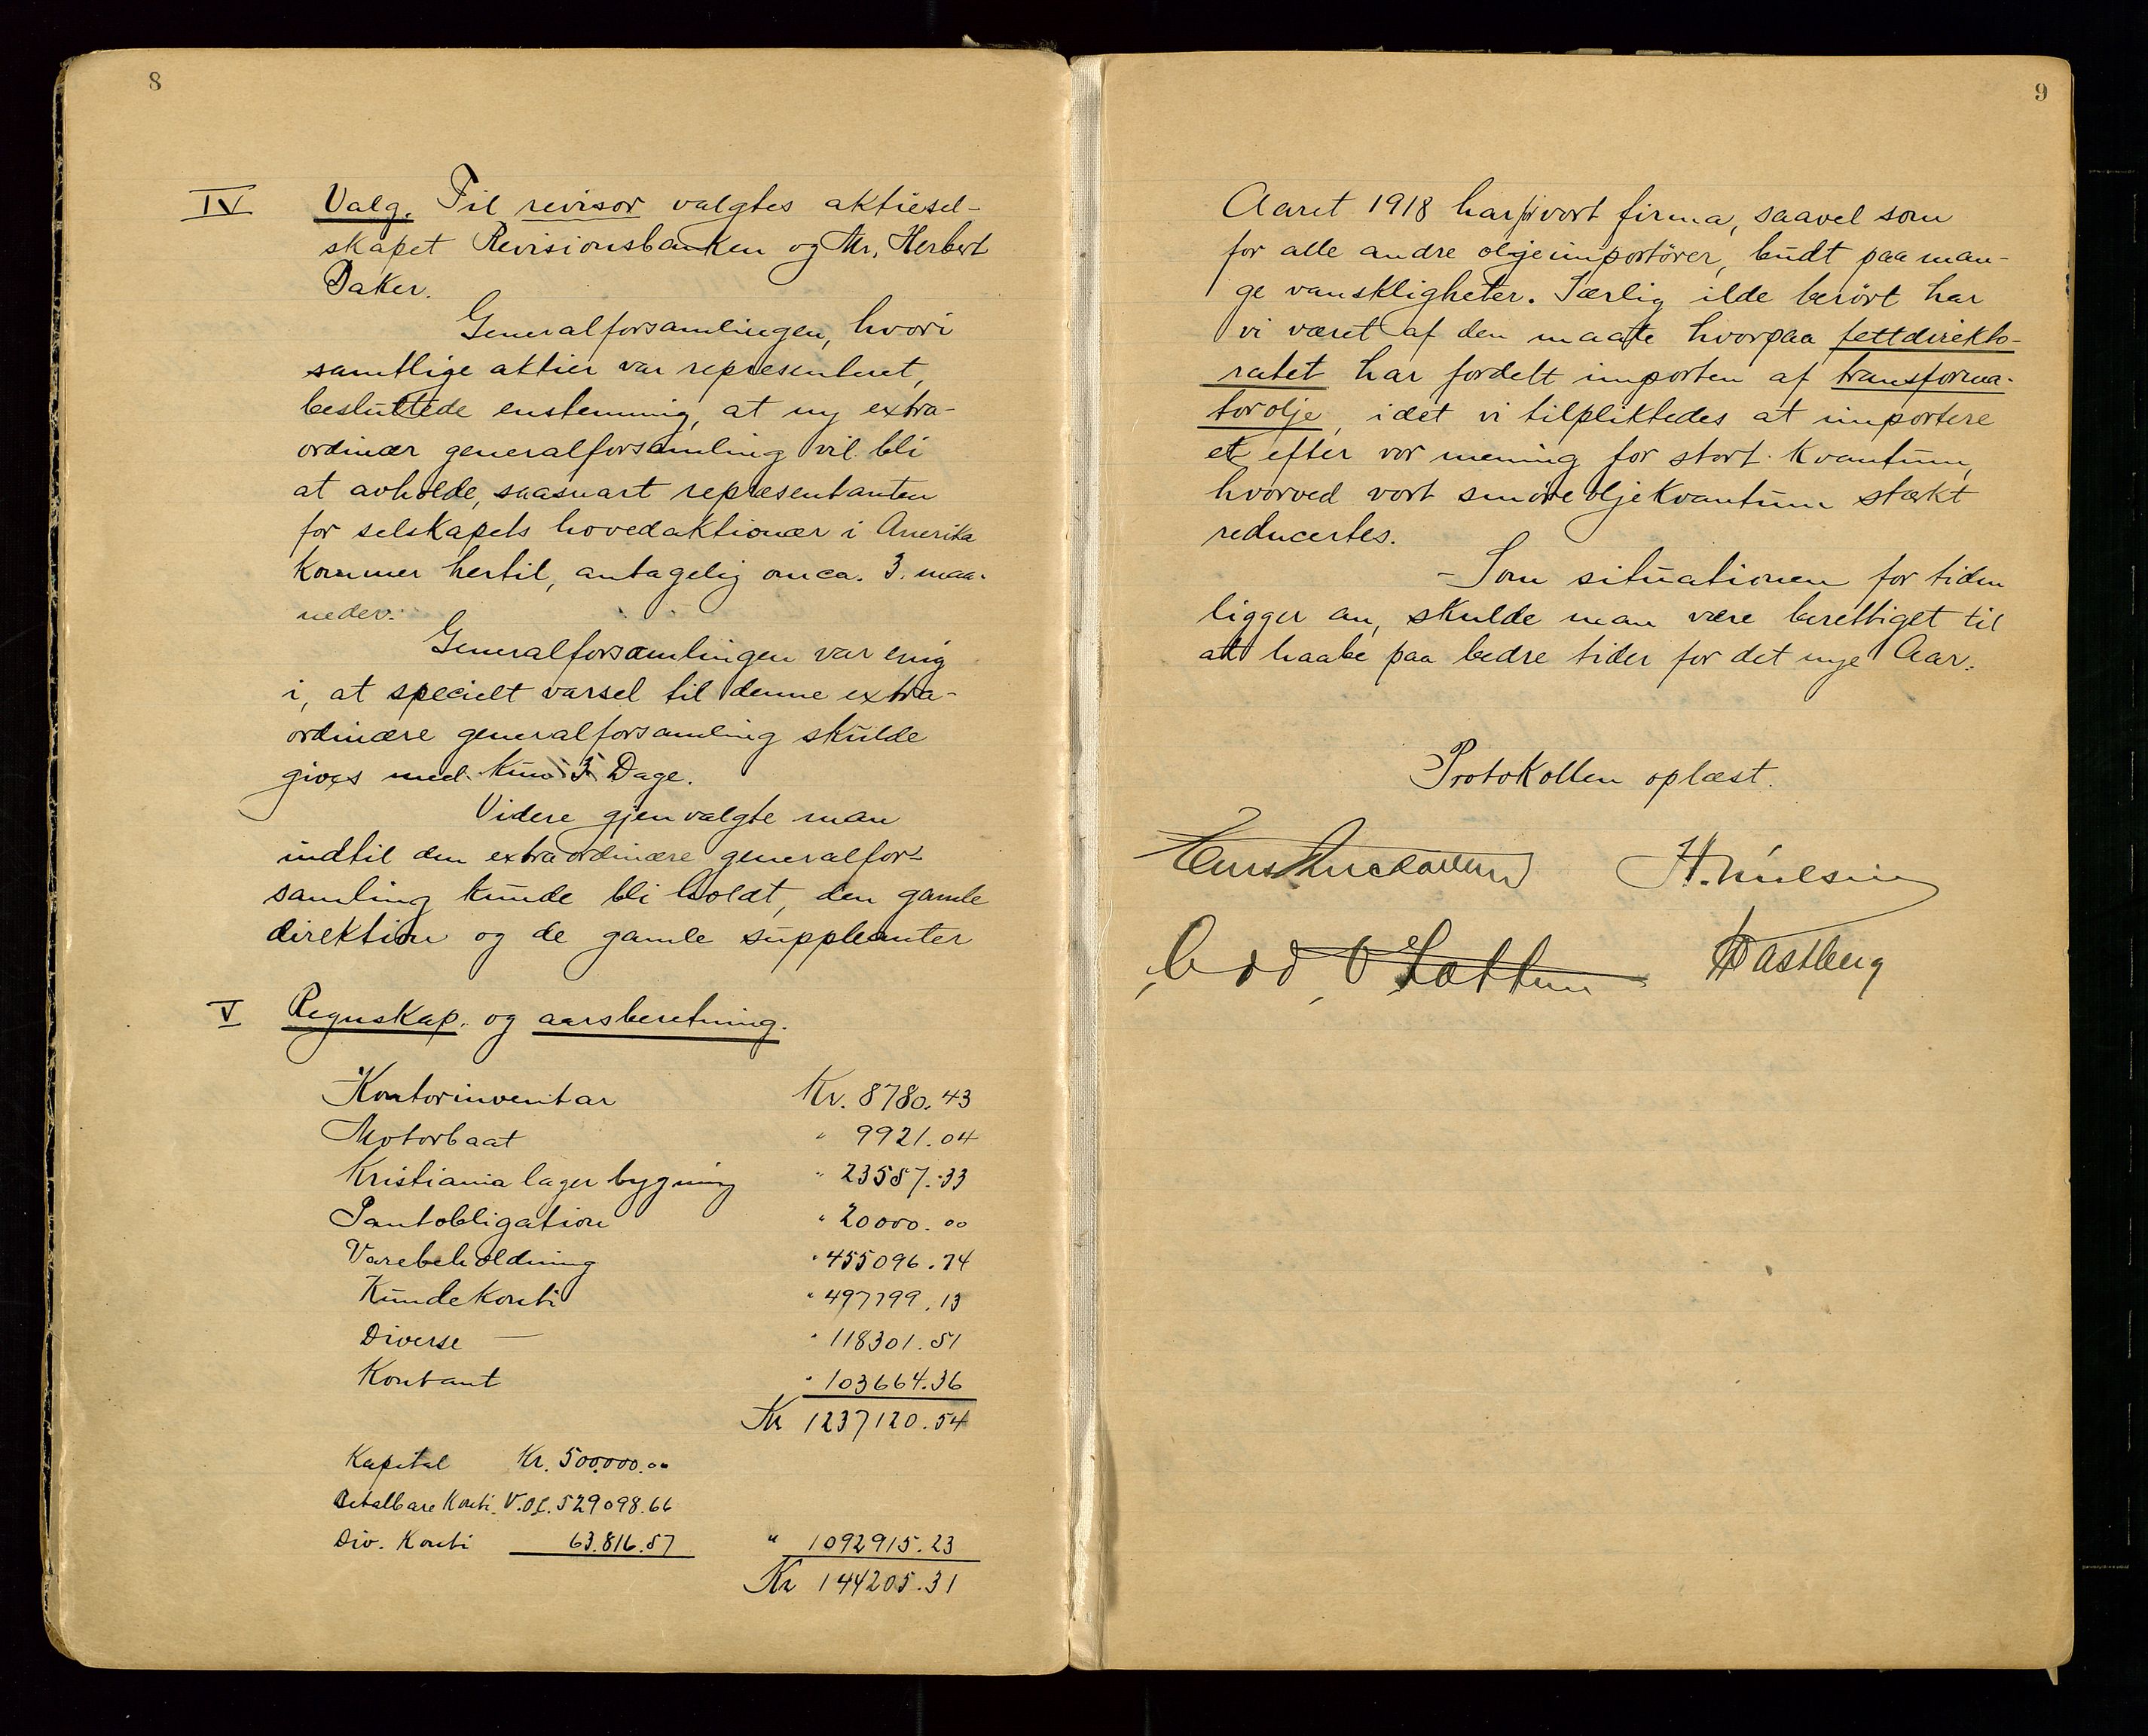 8
IV Valg. Til revisor valgtes aktiesel-
skapet Revisionsbanken og Mr. Herbert
Daker.
Generalforsamlingen, hvori
samtlige aktier var representeret,
besluttede enstemmig, at ny extra-
ordinær generalforsamling vil bli
at avholde, saasnart representanten
for selskapets hovedaktionær i Amerika
kommer hertil, antagelig om ca. 3. maa-
neder.
Generalforsamlingen var enig
i, at specielt varsel til denne extra-
ordinære generalforsamling skulde
gives med kun 3 Dage.
Videre gjenvalgte man
indtil den extraordinære generalfor-
samling kunde bli holdt, den gamle
direktion og de gamle suppleanter
V Regnskap. og aarsberetning.
Kontorinventar Kr. 8780.43
Motorbaat " 9921.04
Kristiania lagerbygning " 23557.33
Pantobligation " 20000.00
Varebeholdning " 455096.74
Kundekonti " 497799.13
Diverse — " 118301.51
Kontant " 103664.36
Kr 1237120.54
Kapital Kr. 500.000.00
Betalbare Konti V.O.C. 529098.66
Div. Konti 63.816.57 " 1092915.23
Kr 144205.31
9
Aaret 1918 har for vort firma, saavel som
for alle andre oljeimportører, budt paa man-
ge vanskligheter. Særlig ilde berørt har
vi været af den maate hvorpaa fettdirekto-
ratet har fordelt importen af transforma-
torolje, idet vi tilpliktedes at importere
et efter vor mening for stort kvantum,
hvorved vort smøreoljekvantum stærkt
reducertes.
- Som situationen for tiden
ligger an, skulde man være berettiget til
at haabe paa bedre tider for det nye Aar.
Protokollen oplæst.
H. Nielsen
Wastberg